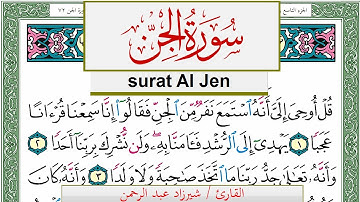 سورة الجن ٧٢
الجزء التاسع
سُورَةُ الجِنِّ
surat Al Jen
قُلْ أُوحِىَ إِلَىَّ أَنَّهُ ٱسْتَمَعَ نَفَرٌ مِّنَ ٱلْجِنِّ فَقَالُوٓا۟ إِنَّا سَمِعْنَا قُرْءَانًا
عَجَبًا ١ يَهْدِىٓ إِلَى ٱلرُّشْدِ فَـَٔامَنَّا بِهِۦ وَلَن نُّشْرِكَ بِرَبِّنَآ أَحَدًا ٢
وَأَنَّهُۥ تَعَٰلَىٰ جَدُّ رَبِّنَا مَا ٱتَّخَذَ صَٰحِبَةً وَلَا وَلَدًا ٣ وَأَنَّهُۥ كَانَ
القارئ / شيرزاد عبد الرحمن